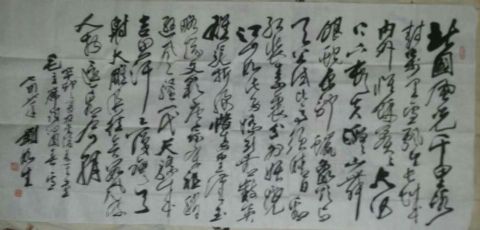 北國風光千里冰
封萬里雪飄望長城
内外惟餘莽莽大河
上下頓失滔滔山舞
銀蛇原馳蠟象欲与
天公試比高須晴日看
紅裝素裹分外妖嬈
江山如此多嬌引無數英
雄競折腰惜秦皇漢武
略輸文采唐宗宋祖稍
遜風騷一代天驕成
吉思汗只識彎弓
射大雕俱往矣數風流
人物還看今朝
辛卯
毛主席詩詞沁園春雪